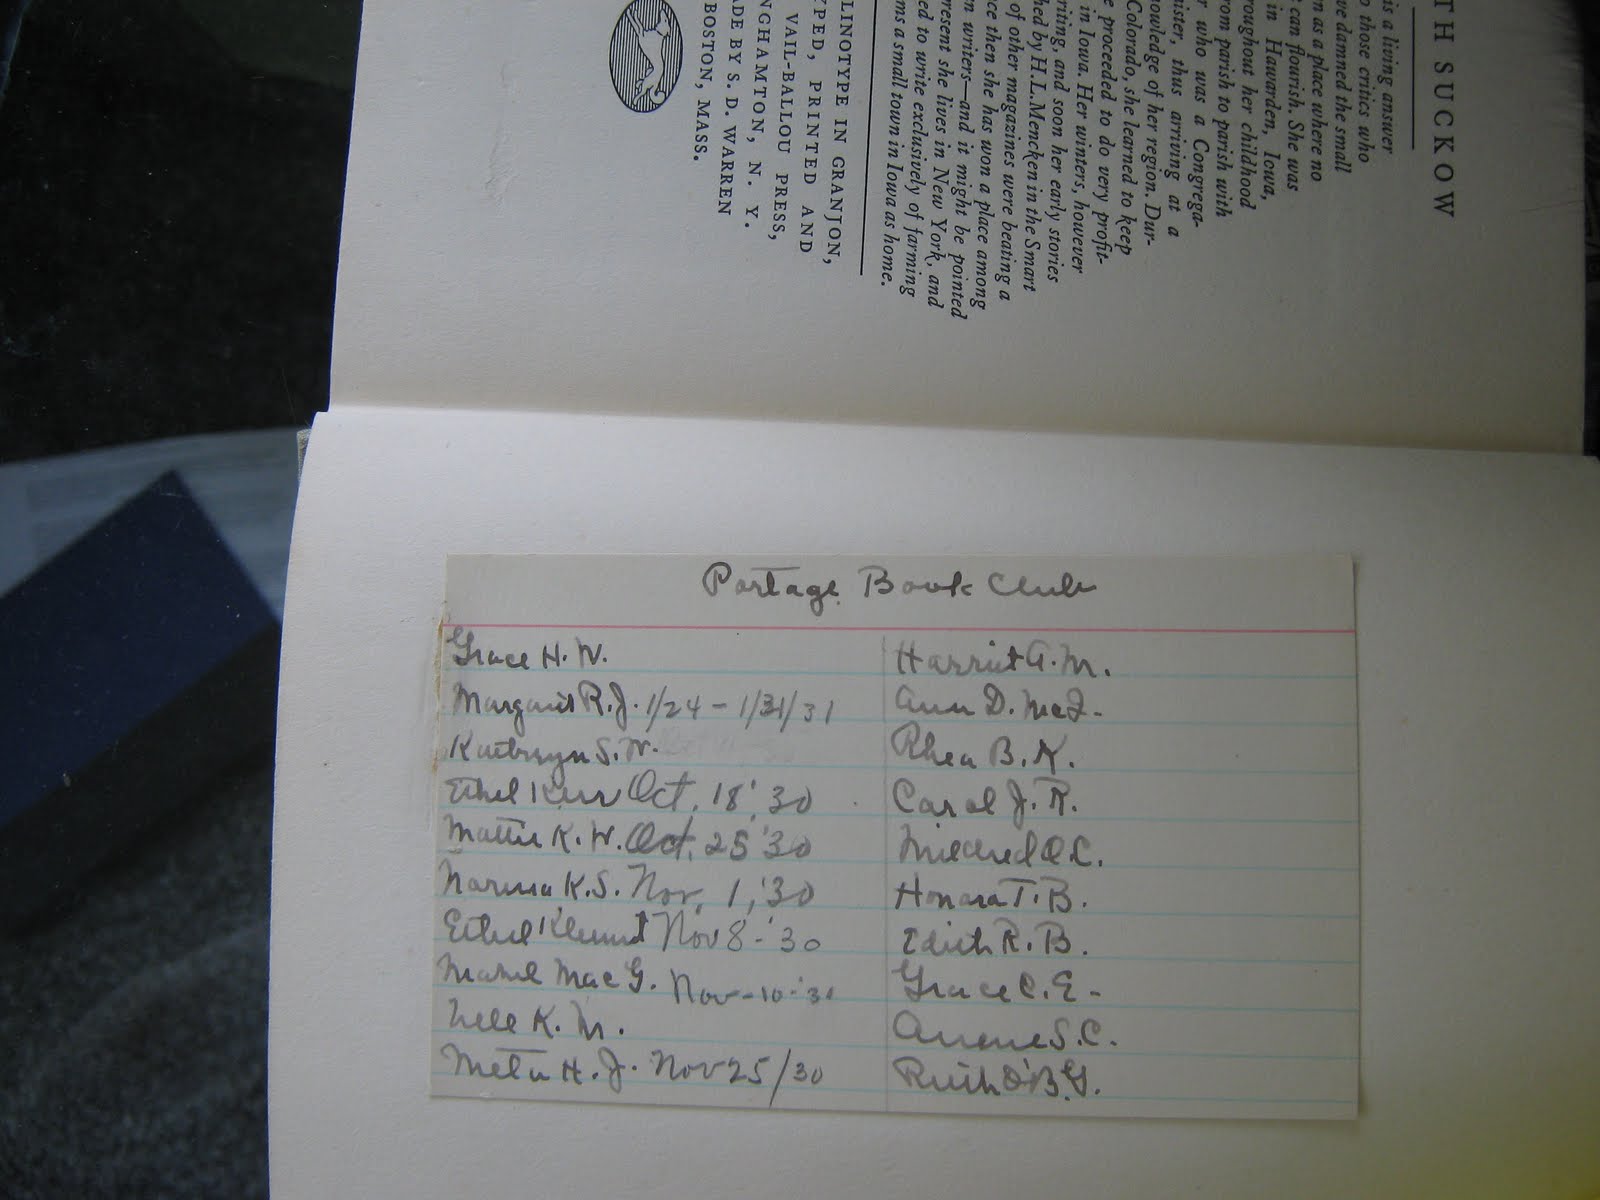 TH SUCKOW
is a living answer
o those critics who
ve damned the small
n as a place where no
t can flourish. She was
in Hawarden, Iowa,
roughout her childhood
rom parish to parish with
r who was a Congrega-
ister, thus arriving at a
nowledge of her region. Dur-
Colorado, she learned to keep
e proceeded to do very profit-
in Iowa. Her winters, however
riting, and soon her early stories
hed by H.L.Mencken in the Smart
of other magazines were beating a
ce then she has won a place among
n writers—and it might be pointed
resent she lives in New York, and
ed to write exclusively of farming
ms a small town in Iowa as home.
LINOTYPE IN GRANJON,
YPED, PRINTED AND
VAIL-BALLOU PRESS,
NGHAMTON, N. Y.
ADE BY S. D. WARREN
BOSTON, MASS.
Portage Book Club
Grace H. W.
Margaret R. J. 1/24 - 1/31/31
Kathryn S. W.
Ethel Kerr Oct. 18, '30
Mattie K. W. Oct. 25 '30
Norma K. S. Nov. 1, '30
Ethel Klemmt Nov 8 - '30
Mabel Mac G. Nov-10-'30
Nell K. M.
Meta H. J. Nov 25/30
Harriet A. M.
Ann D. McF.
Rhea B. K.
Carol J. R.
Mildred O. C.
Honora T. B.
Edith R. B.
Grace C. E.
S. C.
Ruth O'B. G.